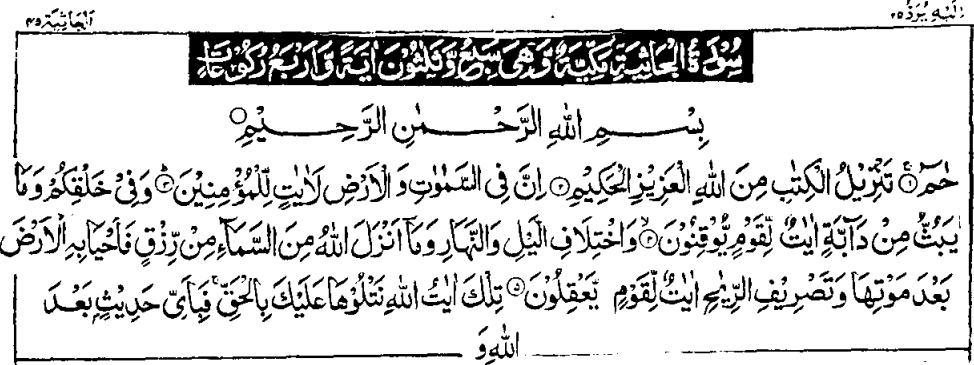 اِلَيْهِ يُرَدُّ ٢٥
اَلْجَاثِيَة ٤٥
سُوْرَةُ الْجَاثِيَةِ مَكِّيَّةٌ وَّهِىَ سَبْعٌ وَّثَلٰثُوْنَ اٰيَةً وَّاَرْبَعُ رُكُوْعَاتٍ
بِسْمِ اللهِ الرَّحْمٰنِ الرَّحِيْمِ○
حٰمٓ ۚ﴿١﴾ تَنْزِيْلُ الْكِتٰبِ مِنَ اللهِ الْعَزِيْزِ الْحَكِيْمِ ﴿٢﴾ اِنَّ فِى السَّمٰوٰتِ وَالْاَرْضِ لَاٰيٰتٍ لِّلْمُؤْمِنِيْنَ ؕ﴿٣﴾ وَفِىْ خَلْقِكُمْ وَمَا
يَبُثُّ مِنْ دَآبَّةٍ اٰيٰتٌ لِّقَوْمٍ يُّوْقِنُوْنَ ۙ﴿٤﴾ وَاخْتِلَافِ الَّيْلِ وَالنَّهَارِ وَمَآ اَنْزَلَ اللهُ مِنَ السَّمَآءِ مِنْ رِّزْقٍ فَاَحْيَا بِهِ الْاَرْضَ
بَعْدَ مَوْتِهَا وَتَصْرِيْفِ الرِّيٰحِ اٰيٰتٌ لِّقَوْمٍ يَّعْقِلُوْنَ ﴿٥﴾ تِلْكَ اٰيٰتُ اللهِ نَتْلُوْهَا عَلَيْكَ بِالْحَقِّ ۚ فَبِاَىِّ حَدِيْثٍۭ بَعْدَ
اللهِ وَ